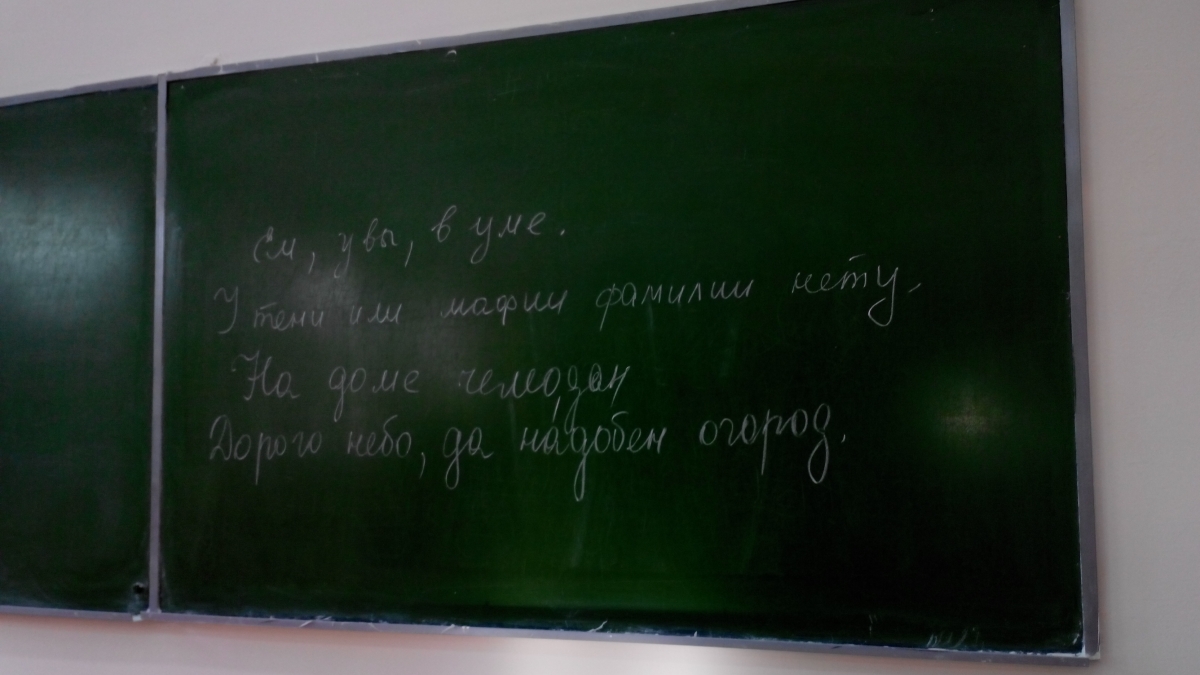 Ем, увы, в уме.
У тени или мафии фамилии нету.
На доме чемодан
Дорого небо, да надобен огород.